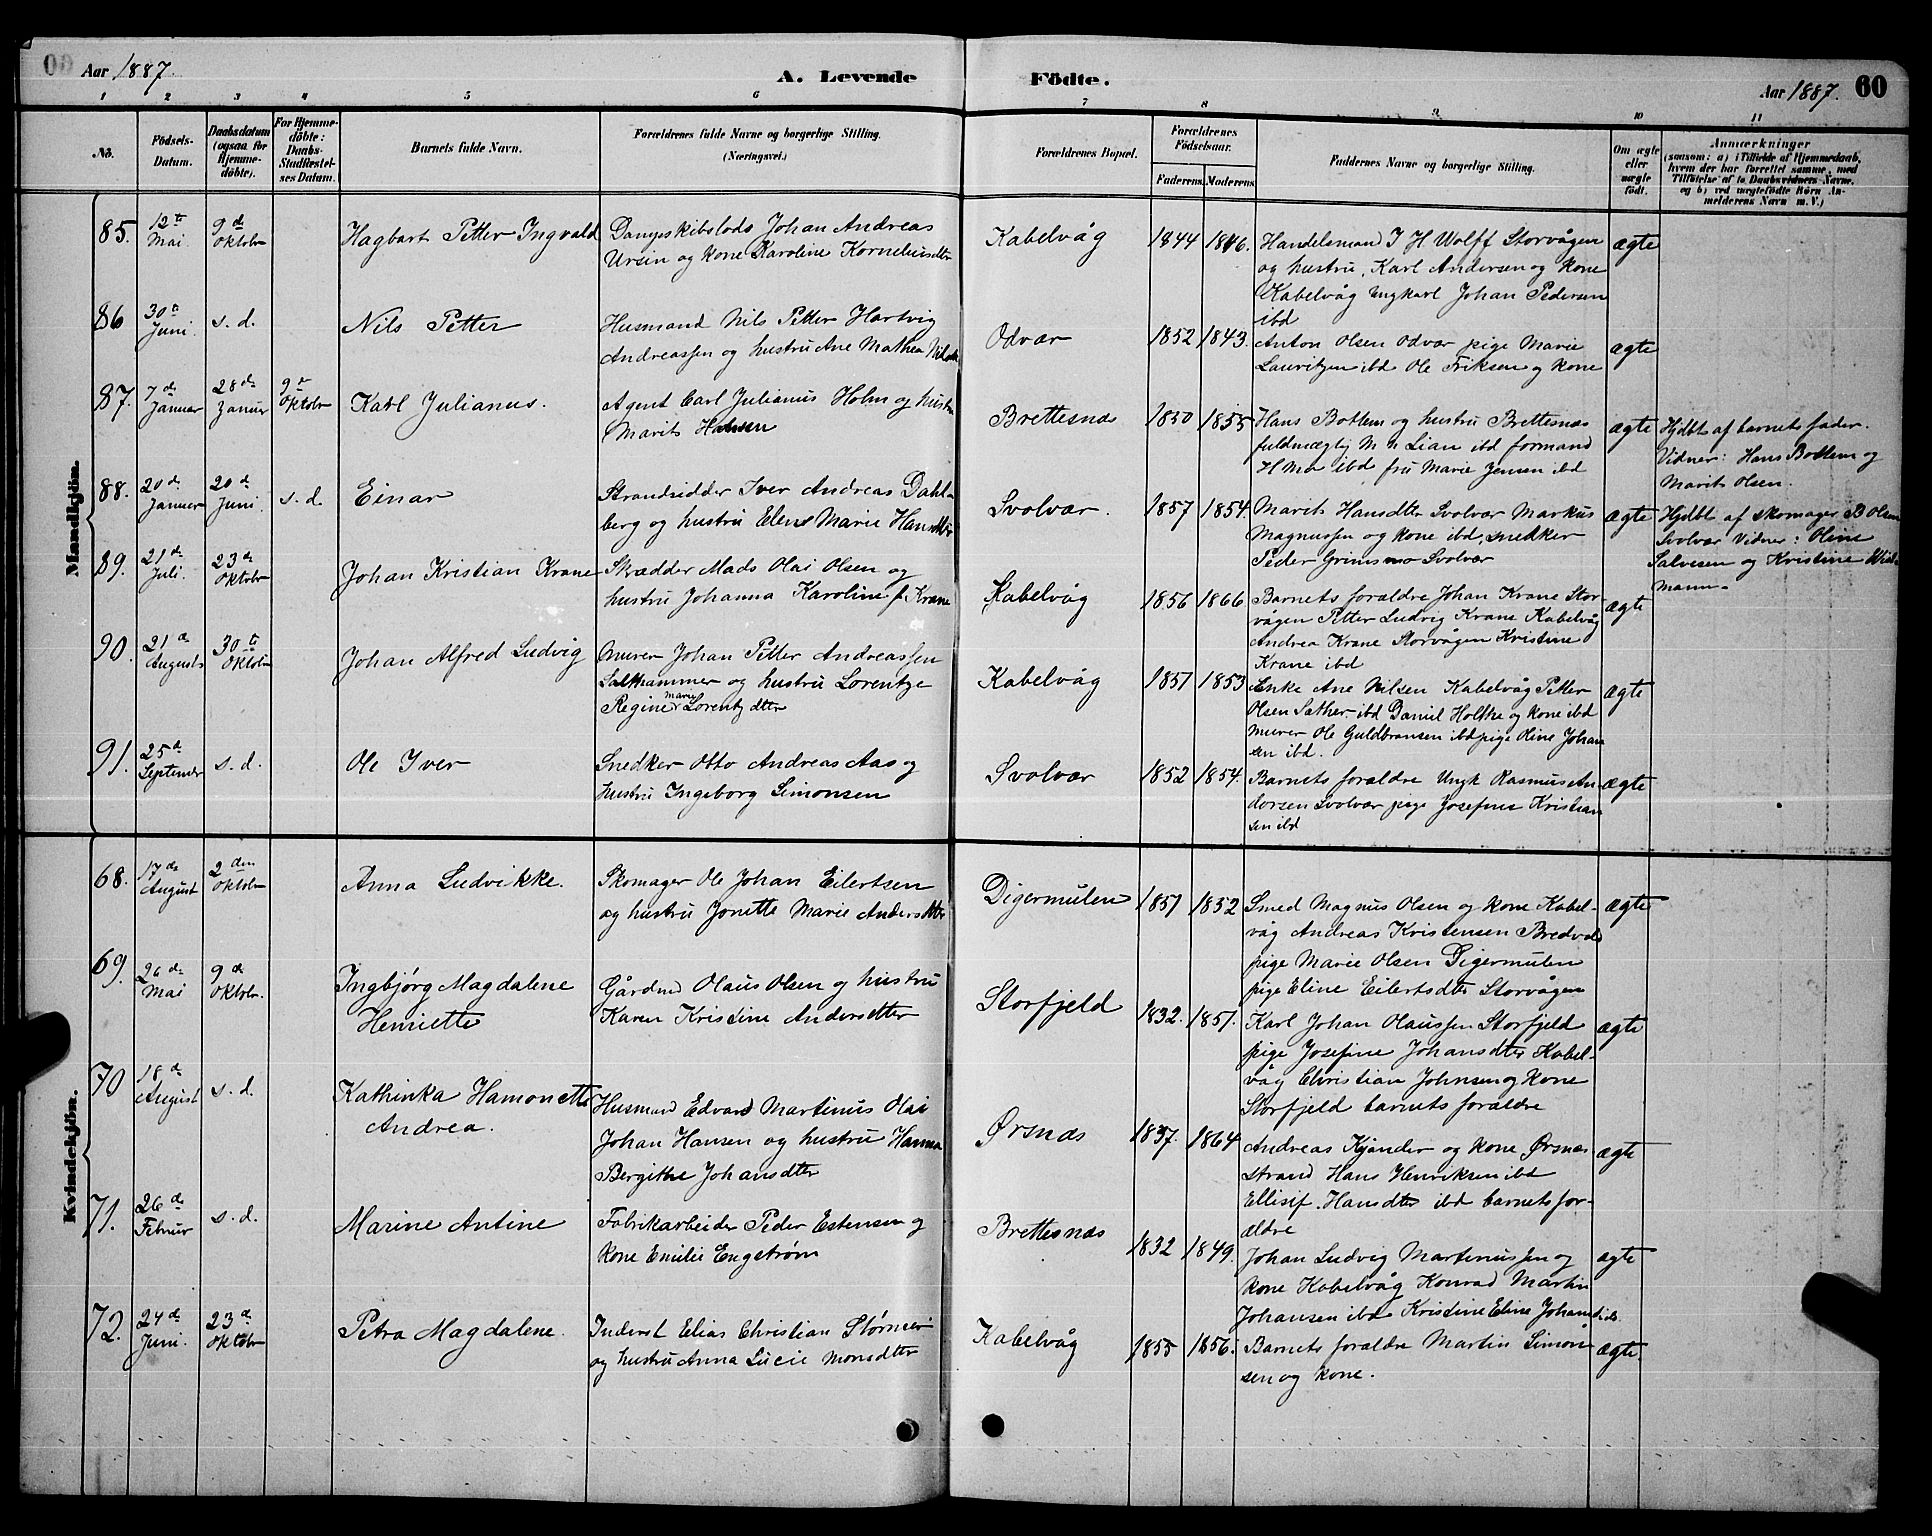 60 Aar 1887. A. Levende Födte. Aar 1887. 60
1 2 3 4 5 6 7 8 9 10 11
No. Födsels-Datum. Daabsdatum (ogsaa for Hjemmedöbte). For Hjemmedöbte: Daabs-Stadfæstelses Datum. Barnets fulde Navn. Forældrenes fulde Navne og borgerlige Stilling. (Næringsvei.)
Forældrenes Bopæl. Forældrenes Födselsaar. Faderens. Moderens. Faddernes Navne og borgerlige Stilling. Om ægte eller uægte födt. Anmærkninger
(saasom: a) i Tilfælde af Hjemmedaab,
hvem der har forrettet samme, med
Tilföielse af to Daabsvidners Navne,
og b) ved uægtefödte Börn An-
melderens Navn m. V.)
Mandkjön.
85. 12te Mai 9d Oktobr Hagbart Petter Ingvald
Dampskibslods Johan Andreas
Ursin og kone Karoline Korneliusdtter
Kabelvåg 1844 1846.
Handelsmand J H Wolff Storvågen
og hustru, Karl Andersen og kone
Kabelvåg Ungkarl Johan Pedersen
ibd
ægte
86 30te Juni s. d. Nils Petter
Husmand Nils Petter Hartvig
Andreassen og hustru Ane Mathea
Odvær 1852 1843.
Anton Olsen Odvær pige Marie
Lauritzen ibd Ole Eriksen og kone
ægte
87. 7de Januar 28de Januar 9de Oktobr Karl Julianus.
Agent Carl Julianus Holm og hustru
Marit Hansen
Brettesnæs 1850 1855
Hans Bottem og hustru Brettesnæs
fuldmægtig M N Lian ibd formand
H Mo ibd fru Marie Jensen ibd
ægte
Hjdbt af barnets fader.
Vidner: Hans Bottem og
Marit Olsen.
88. 20de Januar 20de Juni s. d. Einar
Strandsidder Iver Andreas Dahl-
berg og hustru Elene Marie Hansdtter
Svolvær. 1857 1854.
Marit Hansdtter Svolvær Markus
Magnussen og kone ibd, snedker
Peder Grimsmo Svolvær
ægte
Hjdbt af skomager B Olsen
Svolvær Vidner: Oline
Salvesen og Kristine Wid-
mann.
89. 21de Juli. 23de Oktobr Johan Kristian Krane
Skrædder Mads Olai Olsen og
hustru Johanna Karoline f. Krane
Kabelvåg 1856 1866
Barnets foraldre Johan Krane Stor-
vågen Petter Ludvig Krane Kabelvåg
Andrea Krane Storvågen Kristine
Krane ibd
ægte
90. 21de August 30te Oktobr Johan Alfred Ludvig
Murer Johan Petter Andreassen
Salthammer og hustru Lorentze
Regine Marie Lorentzdtter
Kabelvåg 1851 1853
Enke Ane Nilsen Kabelvåg Petter
Olsen Sæther ibd Daniel Holthe og kone ibd
Murer Ole Guldbransen ibd pige Oline Johan
sen ibd.
ægte
91. 25de September s. d. Ole Iver
Snedker Otto Andreas Aas og
hustru Ingeborg Simonsen
Svolvær 1852 1854.
Barnets foraldre Ungk Rasmus An-
dersen Svolvær pige Josefine Kristian
sen ibd
ægte
Kvindekjön.
68. 17de August 2den Oktobr Anna Ludvikke.
Skomager Ole Johan Eilertsen
og hustru Jonette Marie Andersdtter
Digermulen 1851 1852
Smed Magnus Olsen og kone Kabel-
våg Andreas Kristensen
pige Marie Olsen Digermulen
pige Eline Eilertsdtter Storvågen
ægte
69. 26de Mai 9de Oktobr. Ingbjørg Magdalene
Henriette
Gårdmd Olaus Olsen og hustru
Karen Kristine Andersdtter
Storfjeld 1832. 1851.
Karl Johan Olaussen Storfjeld
pige Josefine Johansdtter Kabel-
våg Christian Johnsen og kone
Storfjeld barnets foraldre
ægte
70 18de August s. d. Kathinka Hamonette
Andrea.
Husmand Edvard Martinus Olai
Johan Hansen og hustru Hanna
Bergithe Johansdtter
Ørsnæs 1837. 1864
Andreas Kjønder og kone Ørsnæs
strand Hans Henriksen ibd
Ellisif Hansdtter ibd barnets for-
ældre
ægte
71. 26de Februr s. d. Marine Antine
Fabrikarbeider Peder Estensen og
kone Emilie Engstrøm
Brettesnæs 1832 1849.
Johan Ludvig Martinussen og
kone Kabelvåg Konrad Martin
Johansen ibd Kristine Eline
ægte
72. 24de Juni. 23de Oktobr Petra Magdalene.
Inderst Elias Christian Størmer
og hustru Anna Lucie Monsdtter
Kabelvåg 1855 1856.
Barnets foraldre Martin Simon-
sen og kone.
ægte.